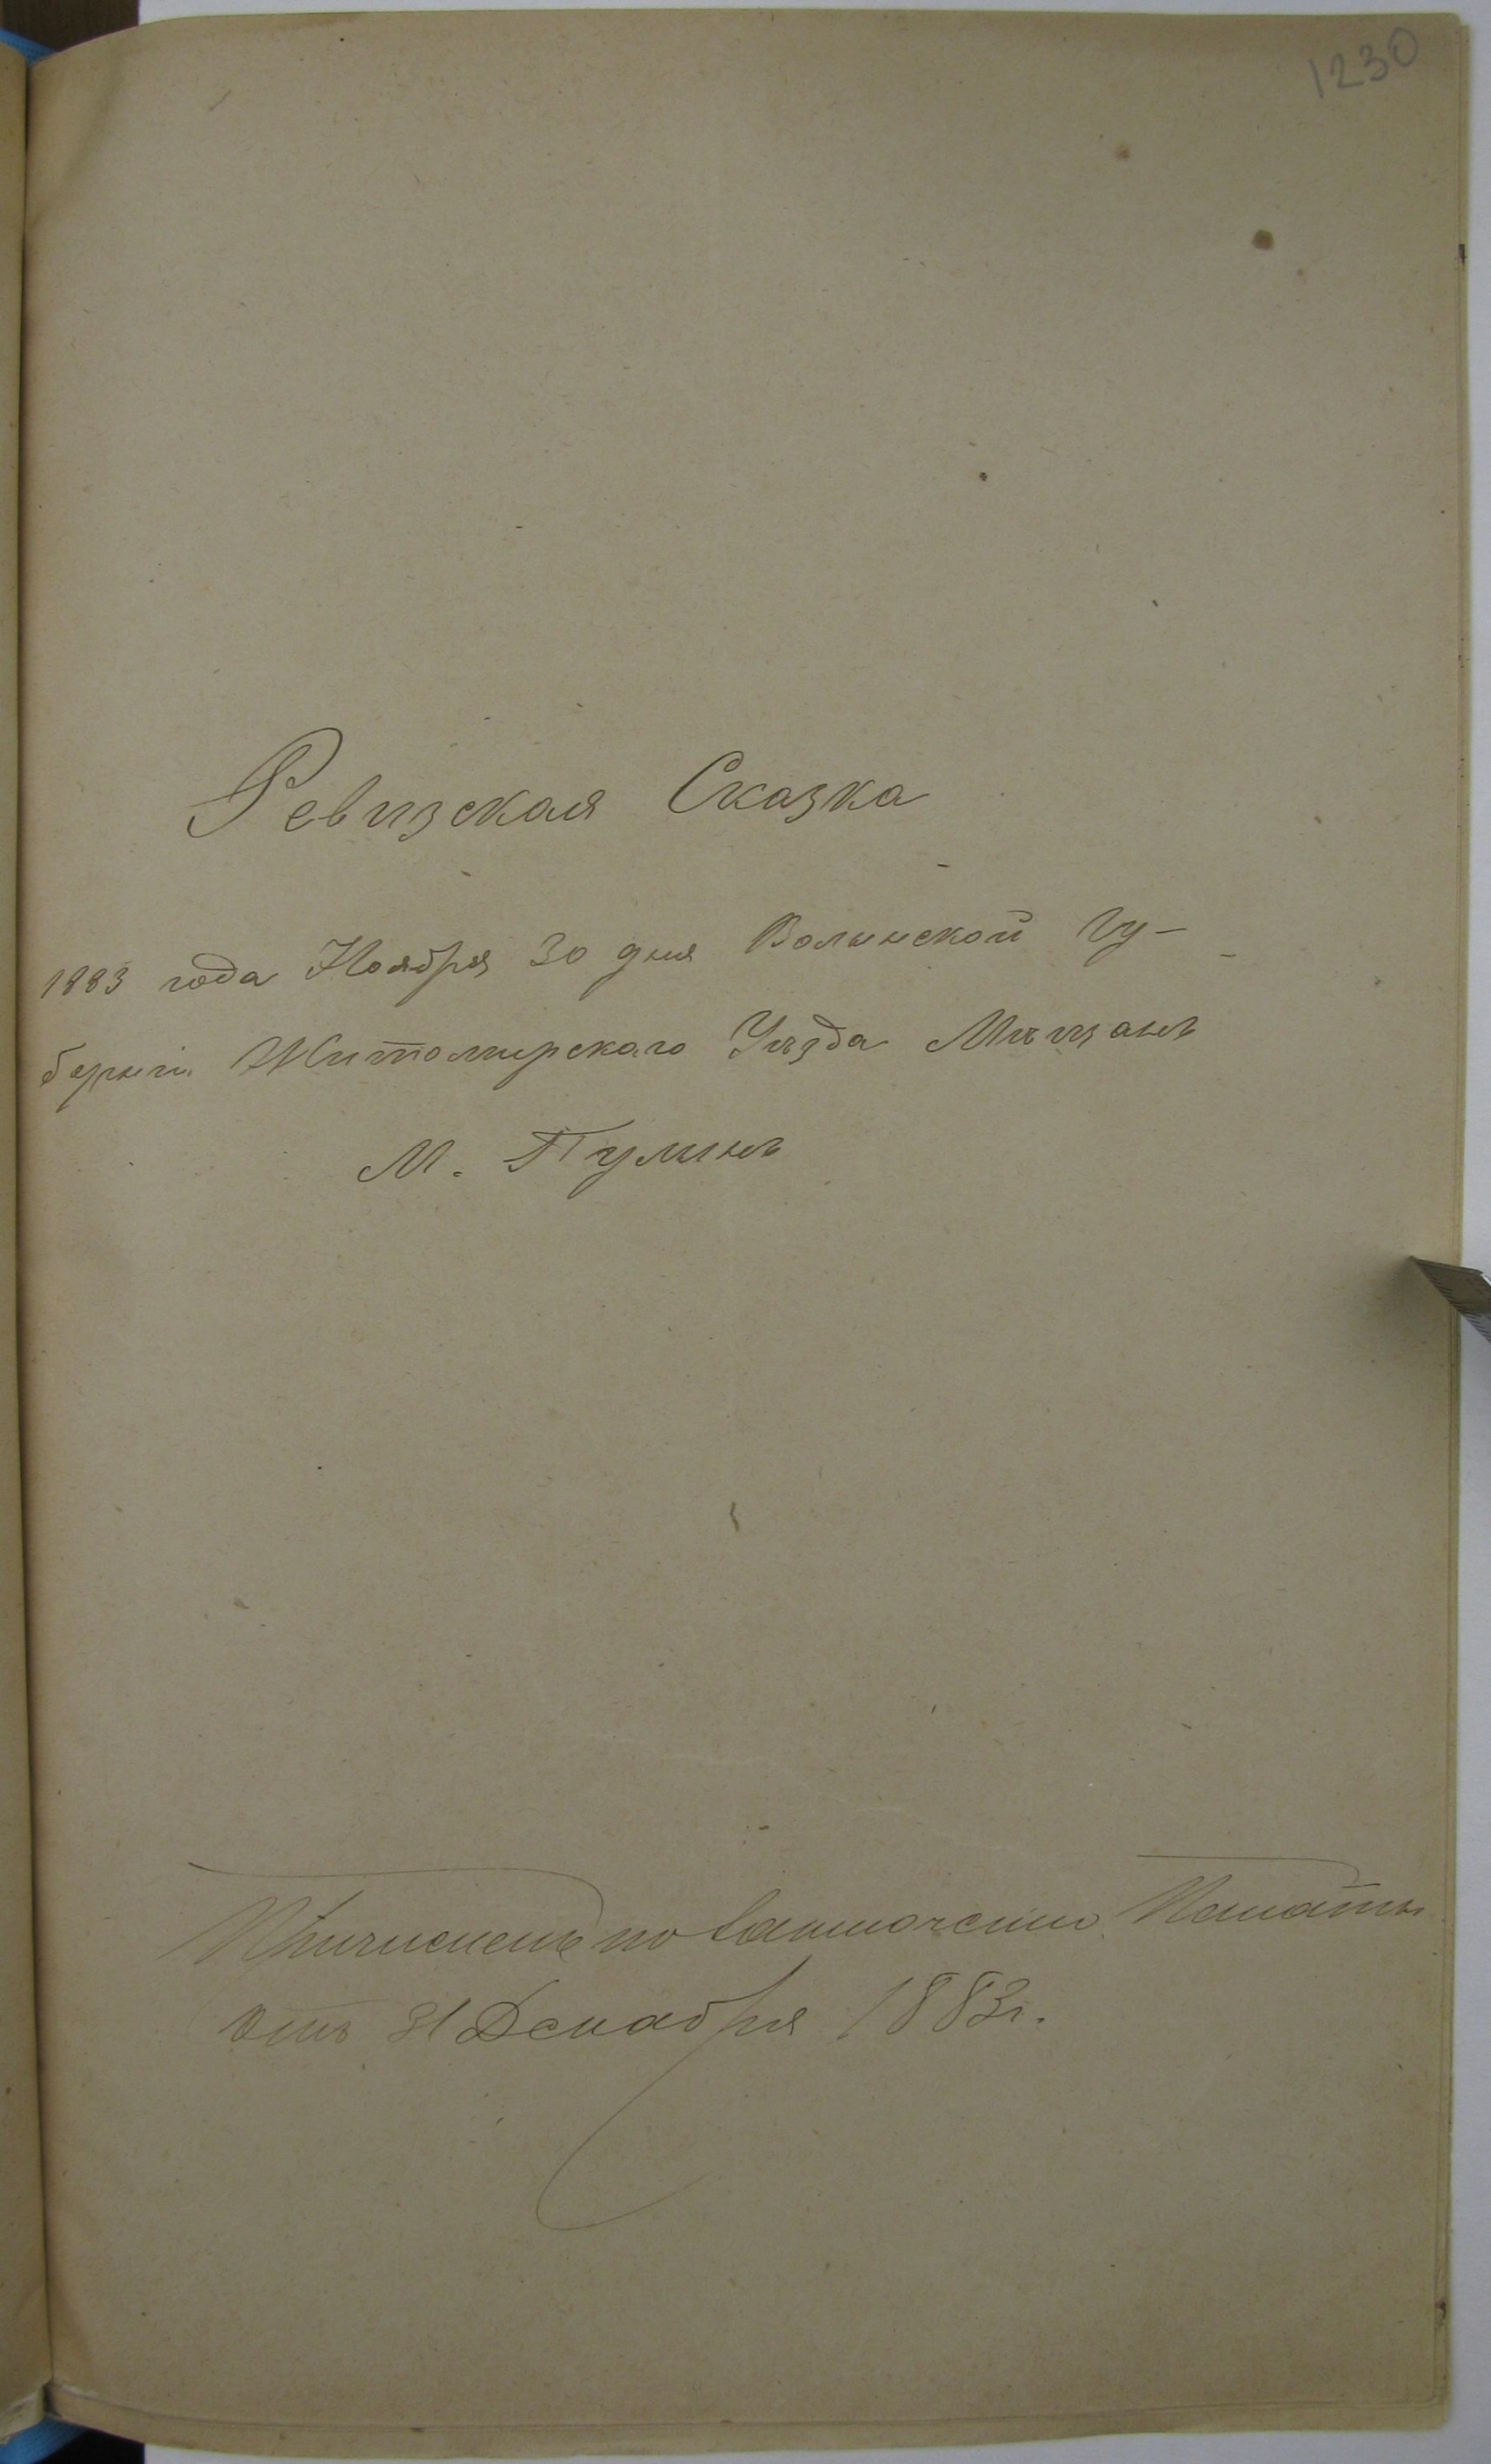 1230
Ревизская Сказка
1883 года Ноября 30 дня Волынской Гу-
берніи Житомирскаго Уѣзда Мѣщанъ
М. Пулинъ
по Палаты
отъ 31 Декабря 1883 г.